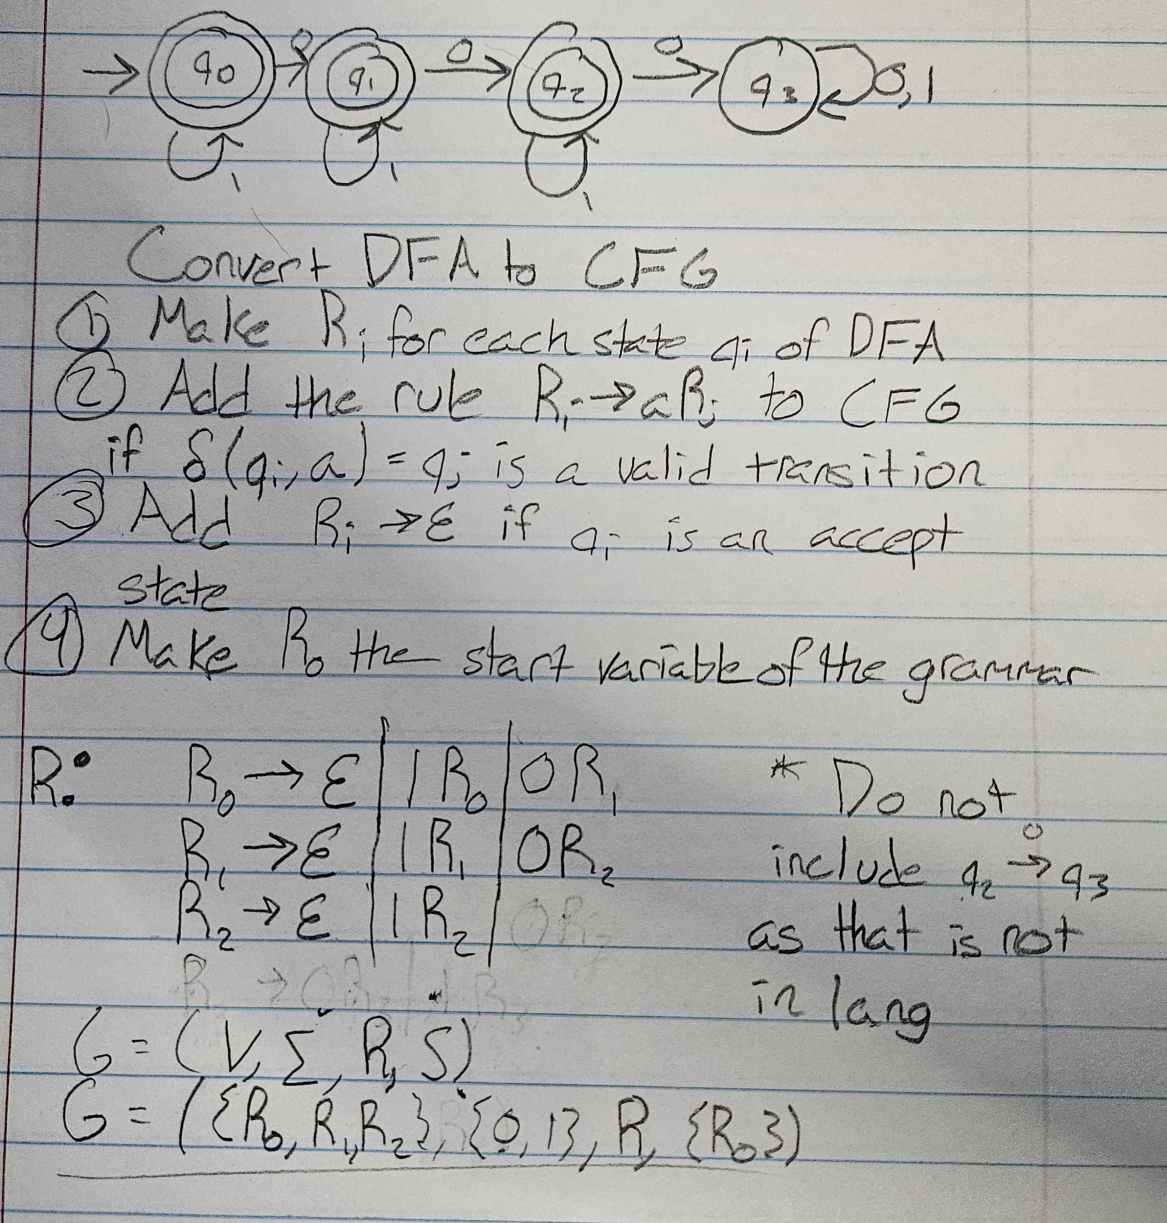 → q0 0→ q1 0→ q2 0→ q3 0,1
1 1 1
Convert DFA to CFG
① Make Ri for each state qi of DFA
② Add the rule Ri→aRj to CFG
if δ(qi, a) = qj is a valid transition
③ Add Ri → ε if qi is an accept
state
④ Make R0 the start variable of the grammar
R: R0 → ε | 1R0 | 0R1 * Do not
R1 → ε | 1R1 | 0R2 include q2 0→ q3
R2 → ε | 1R2 | as that is not
in lang
G = (V, Σ, R, S)
G = ({R0, R1, R2}, {0, 1}, R, {R0})